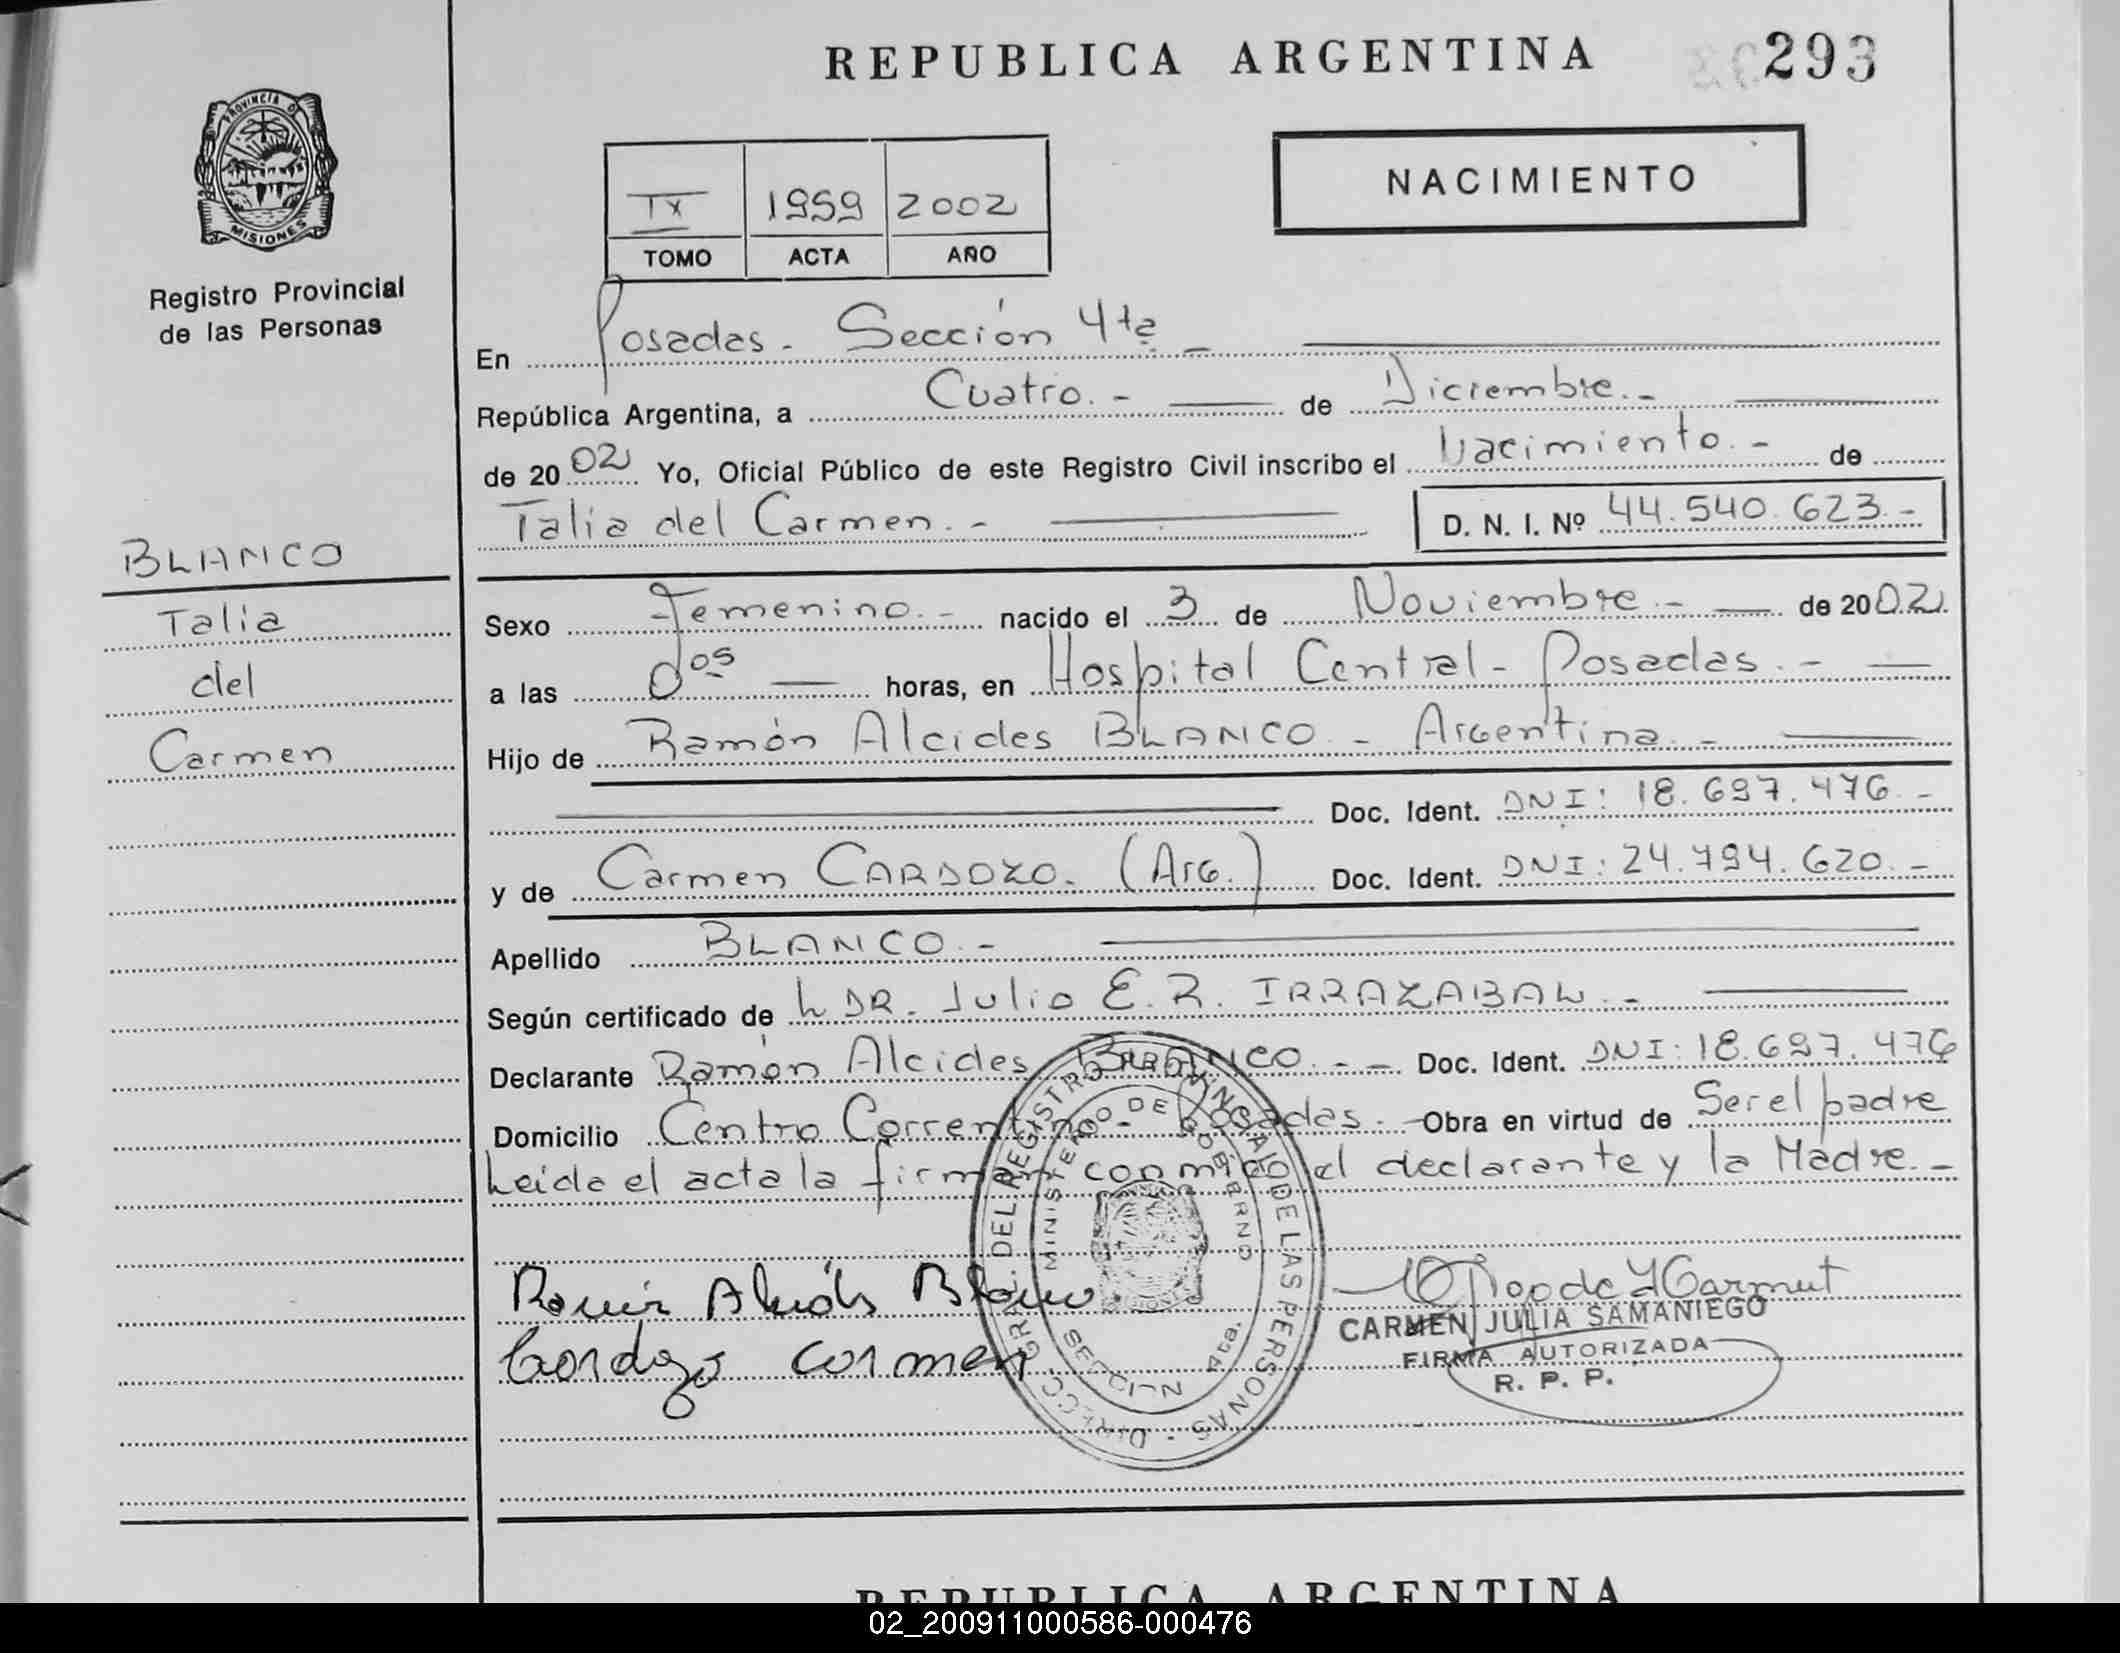 REPUBLICA ARGENTINA
293
PROVINCIA DE
MISIONES
Registro Provincial
de las Personas
IX 1959 2002
TOMO ACTA AÑO
NACIMIENTO
En Posadas - Sección 4ta -
República Argentina, a Cuatro.- de Diciembre.-
de 2002 Yo, Oficial Público de este Registro Civil inscribo el Nacimiento.- de
Talia del Carmen.-
D. N. I. Nº 44.540.623.-
BLANCO
Talia
del
Carmen
Sexo Femenino.- nacido el 3 de Noviembre.- de 2002.
a las dos horas, en Hospital Central - Posadas.-
Hijo de Ramón Alcides BLANCO - Argentina.-
Doc. Ident. DNI: 18.697.476.-
y de Carmen CARDOZO. (Arg.) Doc. Ident. DNI: 24.794.620.-
Apellido BLANCO.-
Según certificado de L DR. Julio E. R. IRRAZABAL.-
Declarante Ramón Alcides BLANCO.- - Doc. Ident. DNI: 18.697.476
Domicilio Centro Correntino - Posadas.- Obra en virtud de Ser el padre
Leida el acta la firman conmigo el declarante y la Madre.-
DIRECC. GRAL. DEL REGISTRO PROVINCIAL DE LAS PERSONAS
MINISTERIO DE GOBIERNO
SECCION 4ta.
Ramon Alcides Blanco
Cardozo Carmen
CARMEN JULIA SAMANIEGO
FIRMA AUTORIZADA
R. P. P.
REPUBLICA ARGENTINA
02_200911000586-000476